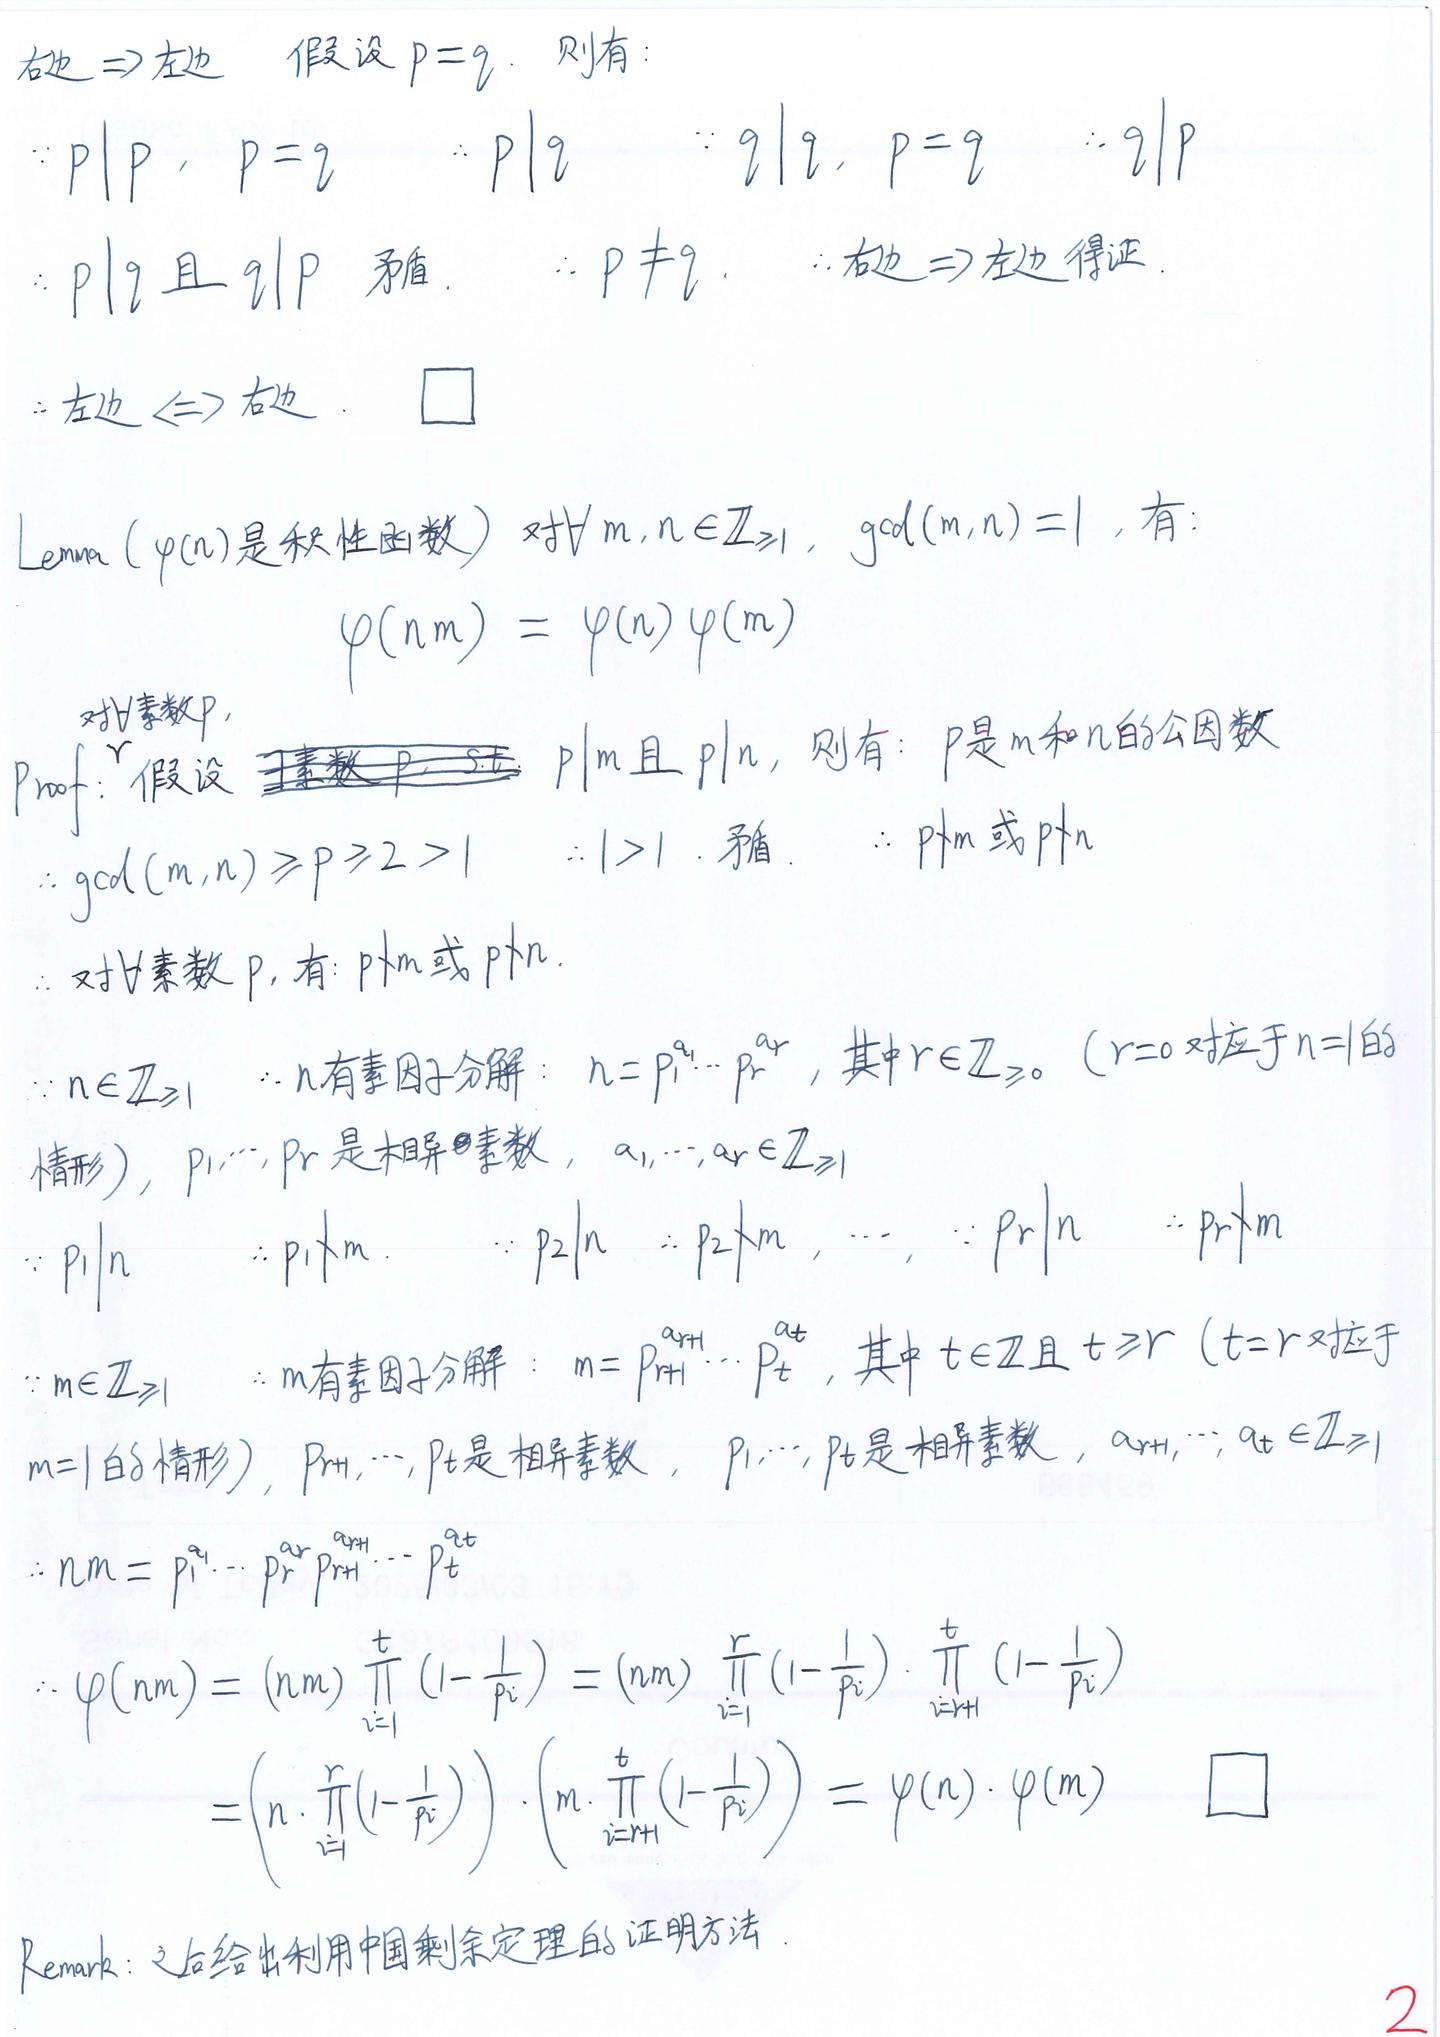 右边 => 左边 假设 p=q. 则有:
∵ p|p, p=q ∴ p|q ∵ q|q, p=q ∴ q|p
∴ p|q 且 q|p 矛盾. ∴ p≠q. ∴ 右边 => 左边 得证.
∴ 左边 <=> 右边. □
Lemma (φ(n)是积性函数) 对∀ m,n∈ℤ≥1, gcd(m,n)=1, 有:
φ(nm) = φ(n)φ(m)
对∀素数p,
Proof: 假设 ∃素数 p, s.t. p|m 且 p|n, 则有: p是m和n的公因数
∴ gcd(m,n)≥p≥2>1 ∴ 1>1. 矛盾. ∴ p∤m 或 p∤n
∴ 对∀素数 p, 有: p∤m 或 p∤n.
∵ n∈ℤ≥1 ∴ n有素因子分解: n=p₁^{a₁}⋯p_r^{a_r}, 其中 r∈ℤ≥0 (r=0 对应于 n=1的
情形), p₁,⋯,p_r 是相异素数, a₁,⋯,a_r∈ℤ≥1
∵ p₁|n ∴ p₁∤m. ∵ p₂|n ∴ p₂∤m, ⋯, ∵ p_r|n ∴ p_r∤m
∵ m∈ℤ≥1 ∴ m有素因子分解: m=p_{r+1}^{a_{r+1}}⋯p_t^{a_t}, 其中 t∈ℤ且 t≥r (t=r 对应于
m=1的情形), p_{r+1},⋯,p_t是相异素数, p₁,⋯,p_t是相异素数, a_{r+1},⋯,a_t∈ℤ≥1
∴ nm = p₁^{a₁}⋯p_r^{a_r}p_{r+1}^{a_{r+1}}⋯p_t^{a_t}
∴ φ(nm) = (nm) ∏_{i=1}^{t} (1-1/p_i) = (nm) ∏_{i=1}^{r} (1-1/p_i) · ∏_{i=r+1}^{t} (1-1/p_i)
= (n·∏_{i=1}^{r}(1-1/p_i)) · (m·∏_{i=r+1}^{t}(1-1/p_i)) = φ(n)·φ(m) □
Remark: 之后给出利用中国剩余定理的证明方法.
2